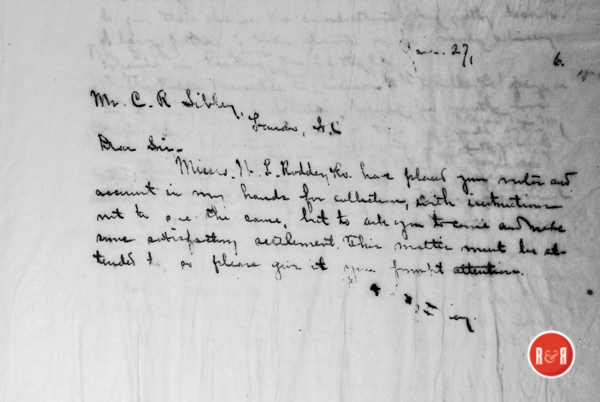 Jan. 27, 6.
Mr. C. R Sibley,
S.C
Dear Sir-
Messrs. W. L. Roddey & Co. have placed your note and
account in my hands for collection, with instructions
not to sue the same, but to ask you to come and make
some satisfactory settlement. This matter must be at-
tended to, so please give it your prompt attention.
R&R